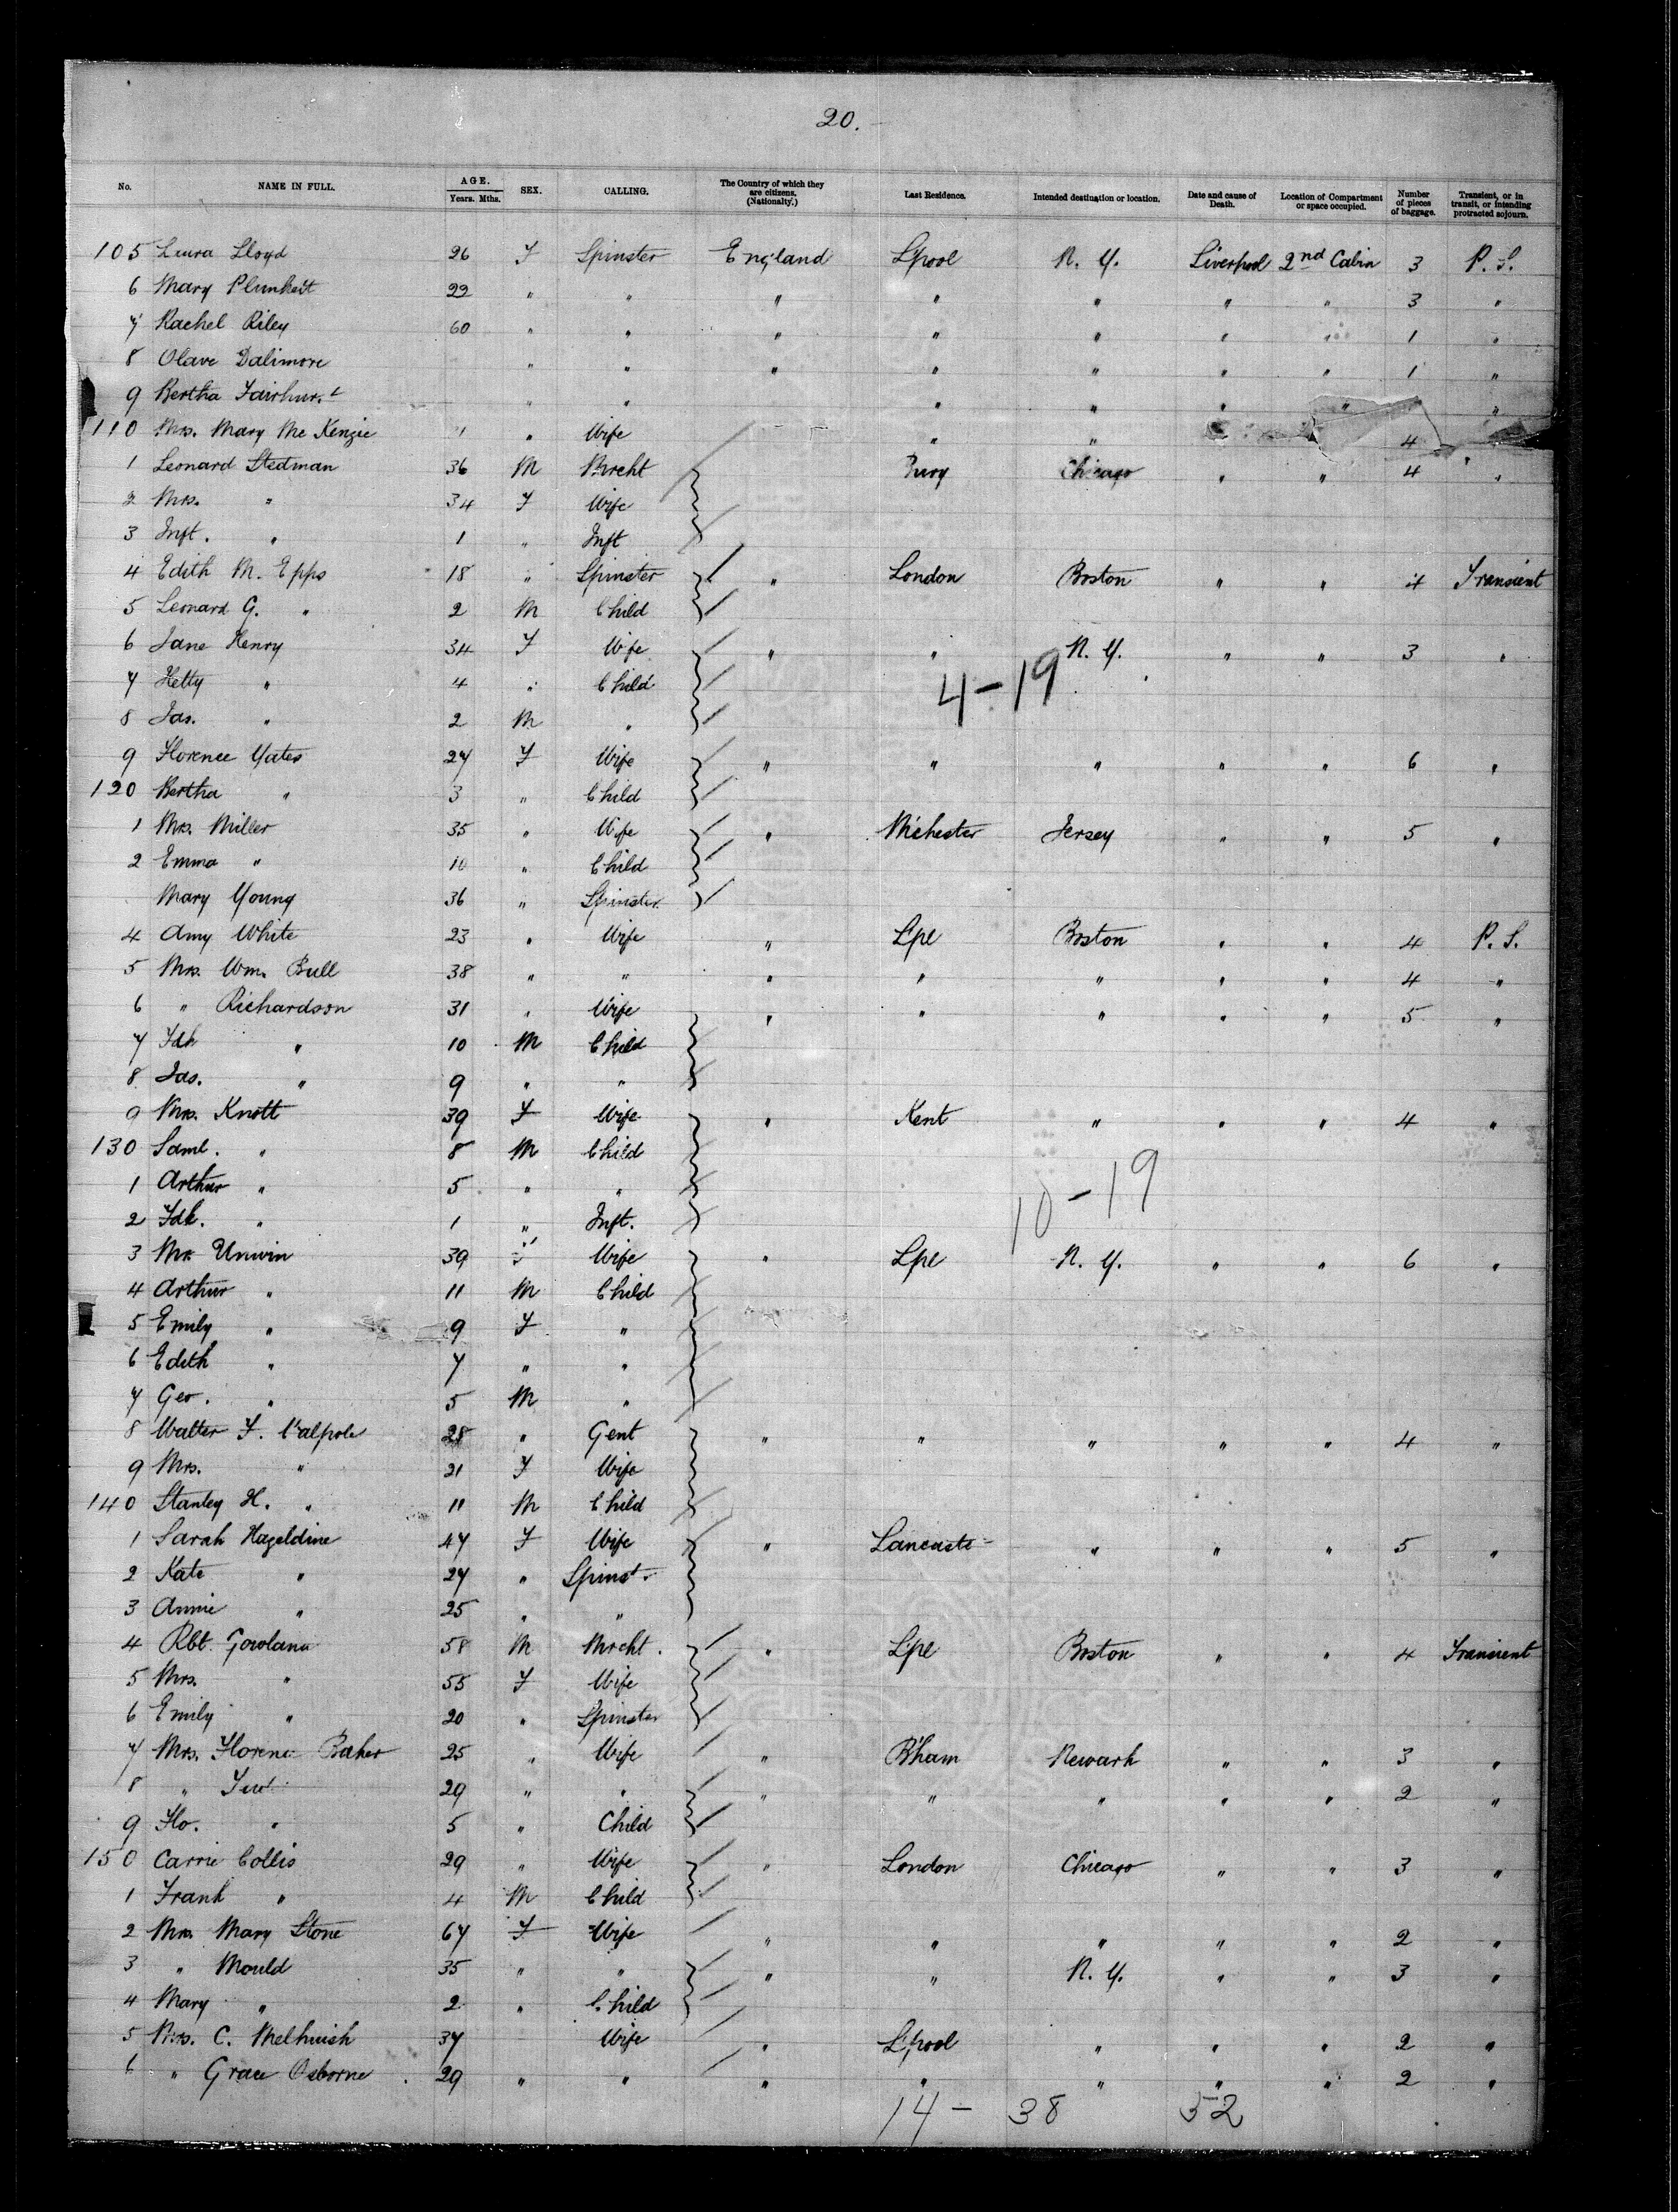 20.
No. NAME IN FULL. AGE. Years. Mths. SEX. CALLING. The Country of which they are citizens. (Nationality.) Last Residence. Intended destination or location. Date and cause of Death. Location of Compartment or space occupied. Number of pieces of baggage. Transient, or in transit, or intending protracted sojourn.
105 Laura Lloyd 26 F Spinster England Lpool N. Y. Liverpool 2nd Cabin 3 P. S.
6 Mary Plunkett 22 " " " " " " " 3 "
7 Rachel Riley 60 " " " " " " " 1 "
8 Olave Dalimore " " " " " " " 1 "
9 Bertha Fairhurst " " " " " " "
110 Mrs. Mary Mc Kenzie " Wife " " 4
1 Leonard Stedman 36 M Mrcht Bury Chicago " " 4 "
2 Mrs. " 34 F Wife
3 Inft. " 1 " Inft
4 Edith M. Epps 18 " Spinster " London Boston " " 4 Transient
5 Leonard G. " 2 M Child
6 Jane Henry 34 F Wife " " N. Y. " " 3 "
7 Hetty " 4 " Child 4-19
8 Jas. " 2 M "
9 Florence Yates 27 F Wife " " " " " 6 "
120 Bertha " 3 " Child
1 Mrs. Miller 35 " Wife " M'chester Jersey " " 5 "
2 Emma " 10 " Child
Mary Young 36 " Spinster
4 Amy White 23 " Wife " Lpl Boston " " 4 P. S.
5 Mrs. Wm. Bull 38 " " " " " " " 4 "
6 " Richardson 31 " Wife " " " " " 5 "
7 Fdk " 10 M Child
8 Jas. " 9 " "
9 Mrs. Knott 39 F Wife " Kent " " " 4 "
130 Saml. " 8 M Child
1 Arthur " 5 " " 10-19
2 Fdk. " 1 " Inft.
3 Mrs Unwin 39 F Wife " Lpl N. Y. " " 6 "
4 Arthur " 11 M Child
5 Emily " 9 F "
6 Edith " 7 " "
7 Geo. " 5 M "
8 Walter F. Walpole 28 " Gent " " " " " 4 "
9 Mrs. " 21 F Wife
140 Stanley H. " 11 M Child
1 Sarah Hazeldine 47 F Wife " Lancaste " " " 5 "
2 Kate " 27 " Spinst.
3 Annie " 25 " "
4 Rbt. Gowland 58 M Mrcht. " Lpl Boston " " 4 Transient
5 Mrs. " 55 F Wife
6 Emily " 20 " Spinster
7 Mrs. Florence Baker 25 " Wife " B'ham Newark " " 3 "
8 " 29 " " " " " " " 2 "
9 Flo. " 5 " Child
150 Carrie Collis 29 " Wife " London Chicago " " 3 "
1 Frank " 4 M Child
2 Mrs. Mary Stone 67 F Wife " " " " " 2 "
3 " Mould 35 " " " " N. Y. " " 3 "
4 Mary " 2 " Child
5 Mrs. C. Melhuish 37 Wife " L'pool " " " 2 "
6 " Grace Osborne 29 " " " " " " " 2 "
14 - 38 52